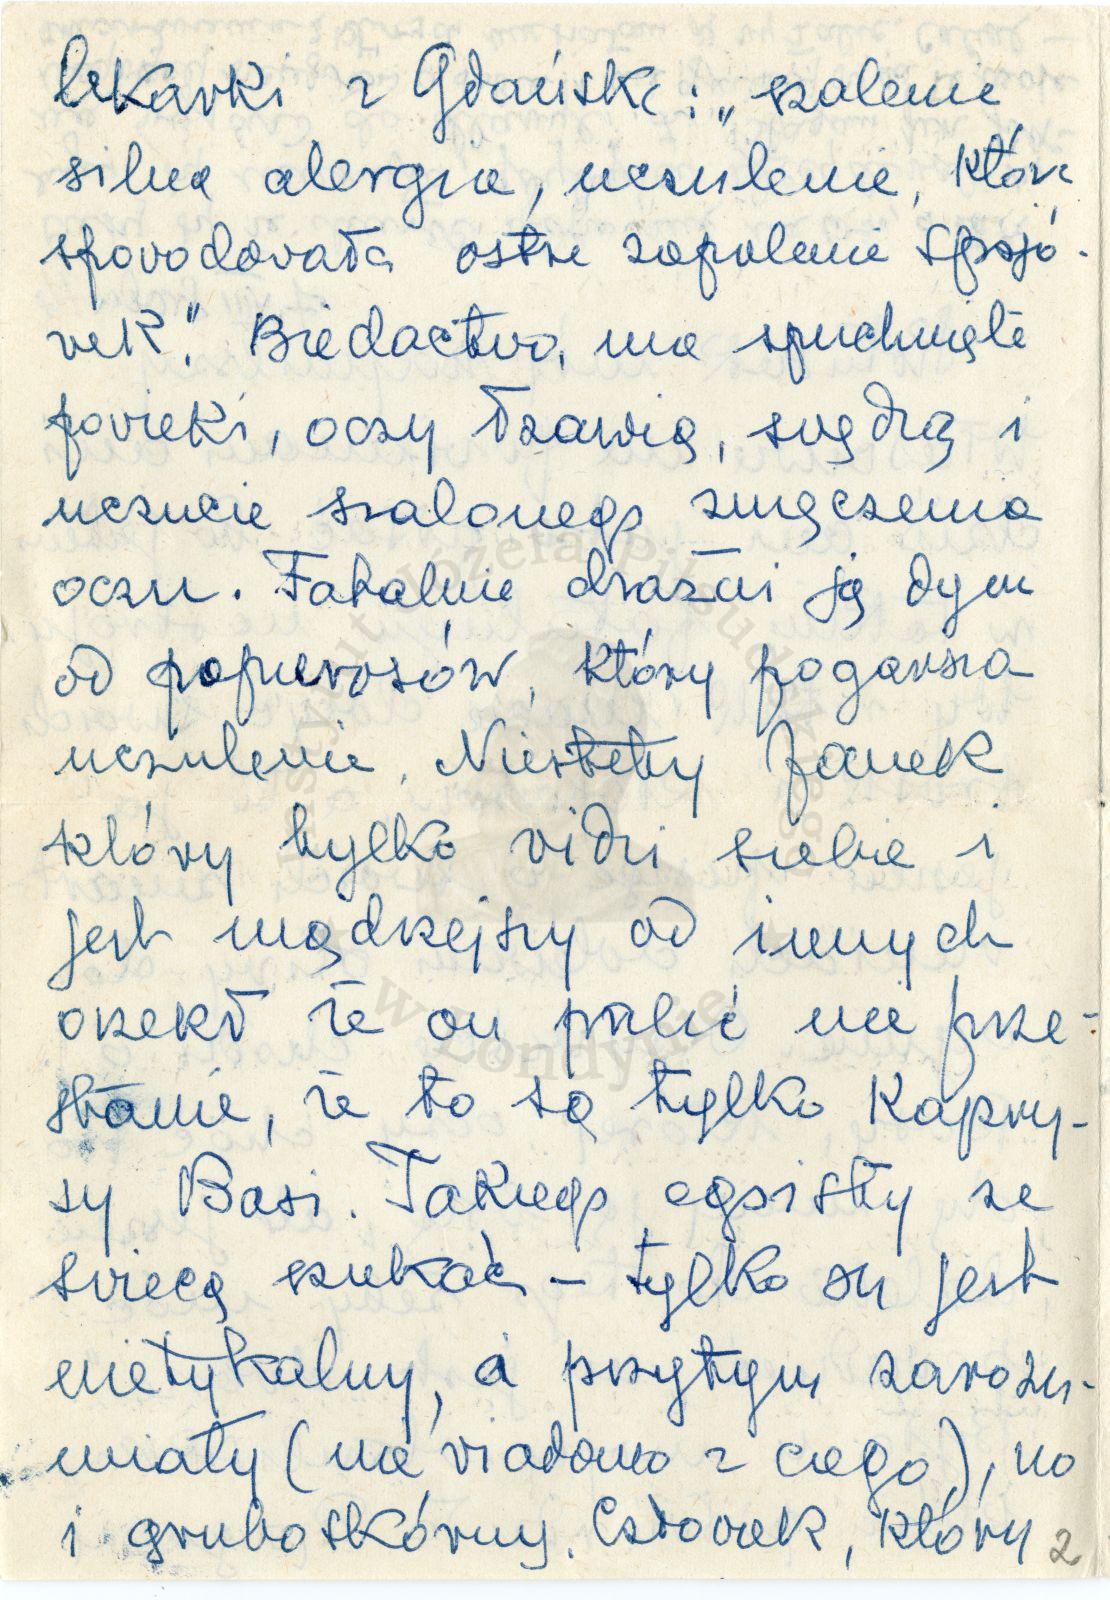 lekarki z Gdańska: „szalenie
silna alergia, uczulenie, które
spovodovała ostre zapalenie spojó-
vek". Biedactvo, ma spuchnięte
povieki, oczy łzawią, svędzą i
uczucie szalonego zmęczenia
oczu. Fatalnie drażni ją dym
od papierosów, który pogarsza
uczulenie. Niestety Janek
który tylko vidzi siebie i
jest mądrzejszy od innych
orzekł że on palić nie prze-
stanie, że to są tylko kapry-
sy Basi. Takiego egoisty ze
śviecą szukać – tylko on jest
nietykalny, a przytym zarozu-
miały (nie viadomo z czego), no
i gruboskórny. Człoviek, który
2
Instytut Józefa Piłsudskiego
w Londynie